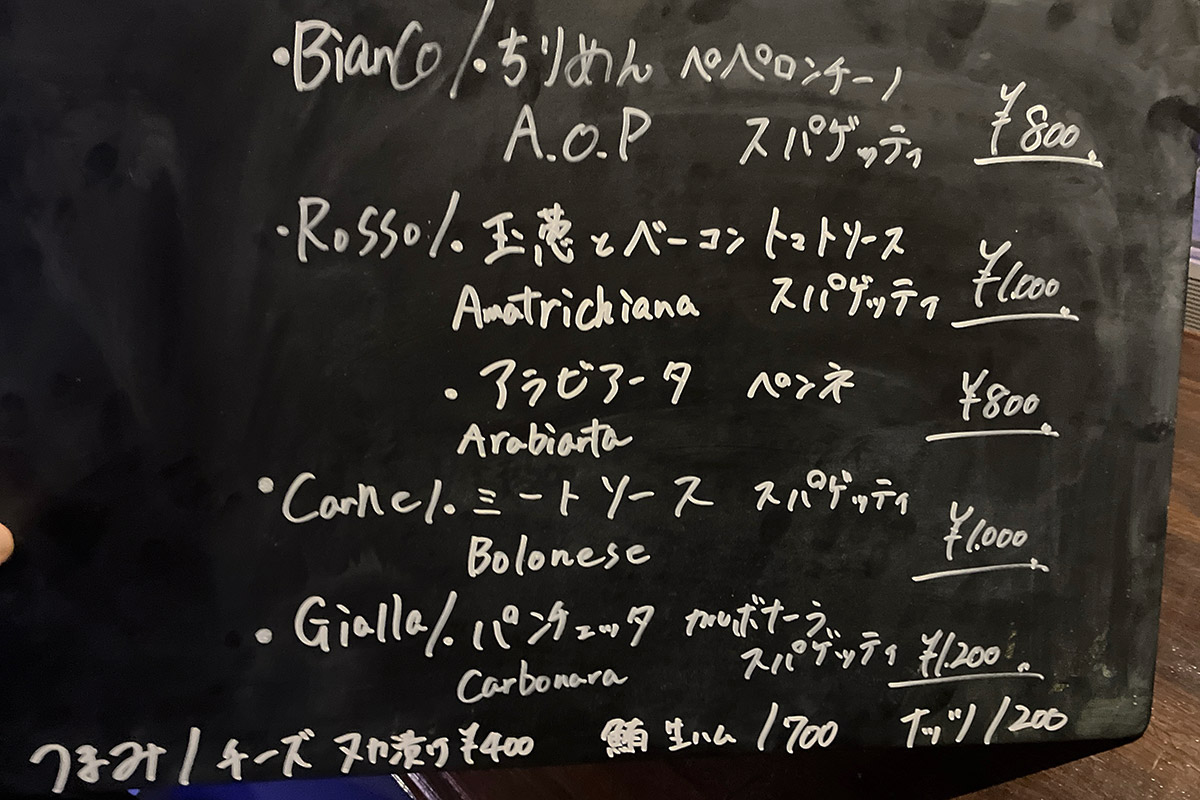 ・Bianco/・ちりめん ペペロンチーノ
A.O.P スパゲッティ ¥800.
・Rosso/. 玉葱とベーコン トマトソース
Amatrichiana スパゲッティ ¥1,000.
・アラビアータ ペンネ ¥800.
Arabiarta
・Carne/. ミートソース スパゲッティ
Bolonese ¥1.000.
・Gialla/. パンチェッタ カルボナーラ
Carbonara スパゲッティ ¥1.200.
つまみ/チーズ ヌカ漬け ¥400 鮪 生ハム/700 ナッツ/200